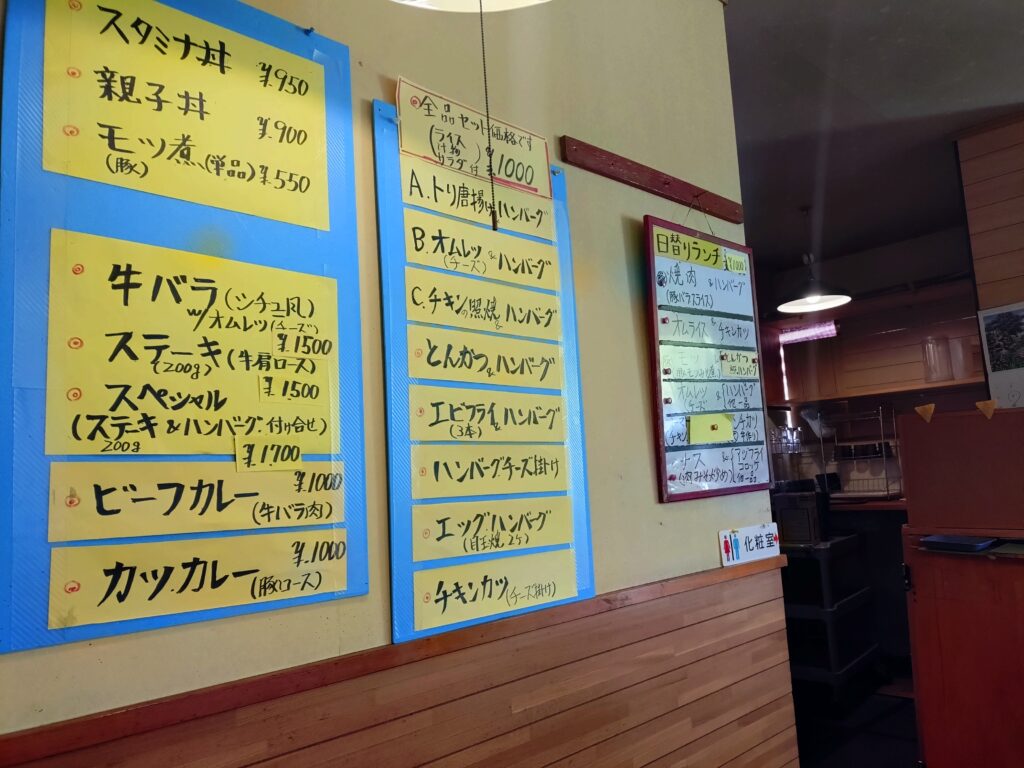 スタミナ丼 ¥950
親子丼 ¥900
モツ煮(単品)¥550
(豚)
牛バラ(シチュー風)
w/オムレツ(チーズ)
¥.1500
ステーキ(牛肩ロース)
(200g)
¥.1500
スペシャル
(ステーキ&ハンバーグ.付け合せ)
200g
¥1700
ビーフカレー ¥.1000
(牛バラ肉)
カツカレー ¥.1000
(豚ロース)
全品セット価格です
(ライス
汁物
サラダ付) ¥.1000
A.トリ唐揚げ&ハンバーグ
B.オムレツ&ハンバーグ
(チーズ)
C.チキンの照焼&ハンバーグ
とんかつ&ハンバーグ
エビフライ&ハンバーグ
(3本)
ハンバーグチーズ掛け
エッグハンバーグ
(目玉焼2ケ)
チキンカツ(チーズ掛け)
日替りランチ ¥1000
焼肉 &ハンバーグ
(豚バラスライス)
オムライス&チキンカツ
モツ
とんかつ
ハンバーグ
オムレツ &ハンバーグ
チーズ 他一品
チキン
ナス &アジフライ
コロッケ
他一品
化粧室